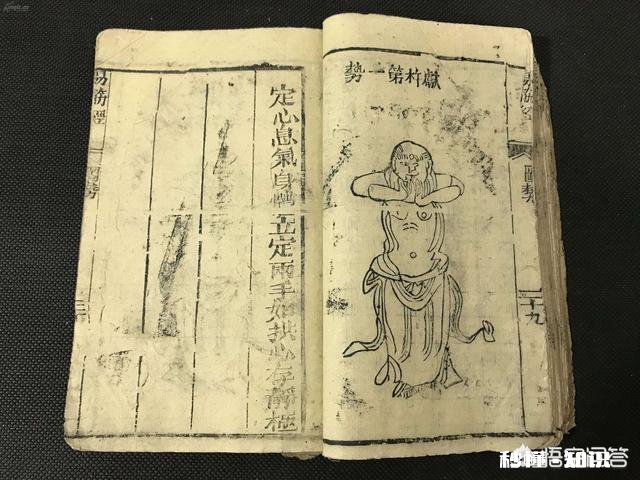 獻杵第一勢
易筋經
圖勢
二十九
定心息氣身體立定兩手如拱心存靜極
易筋經
圖勢
悟空问答
秒懂知识